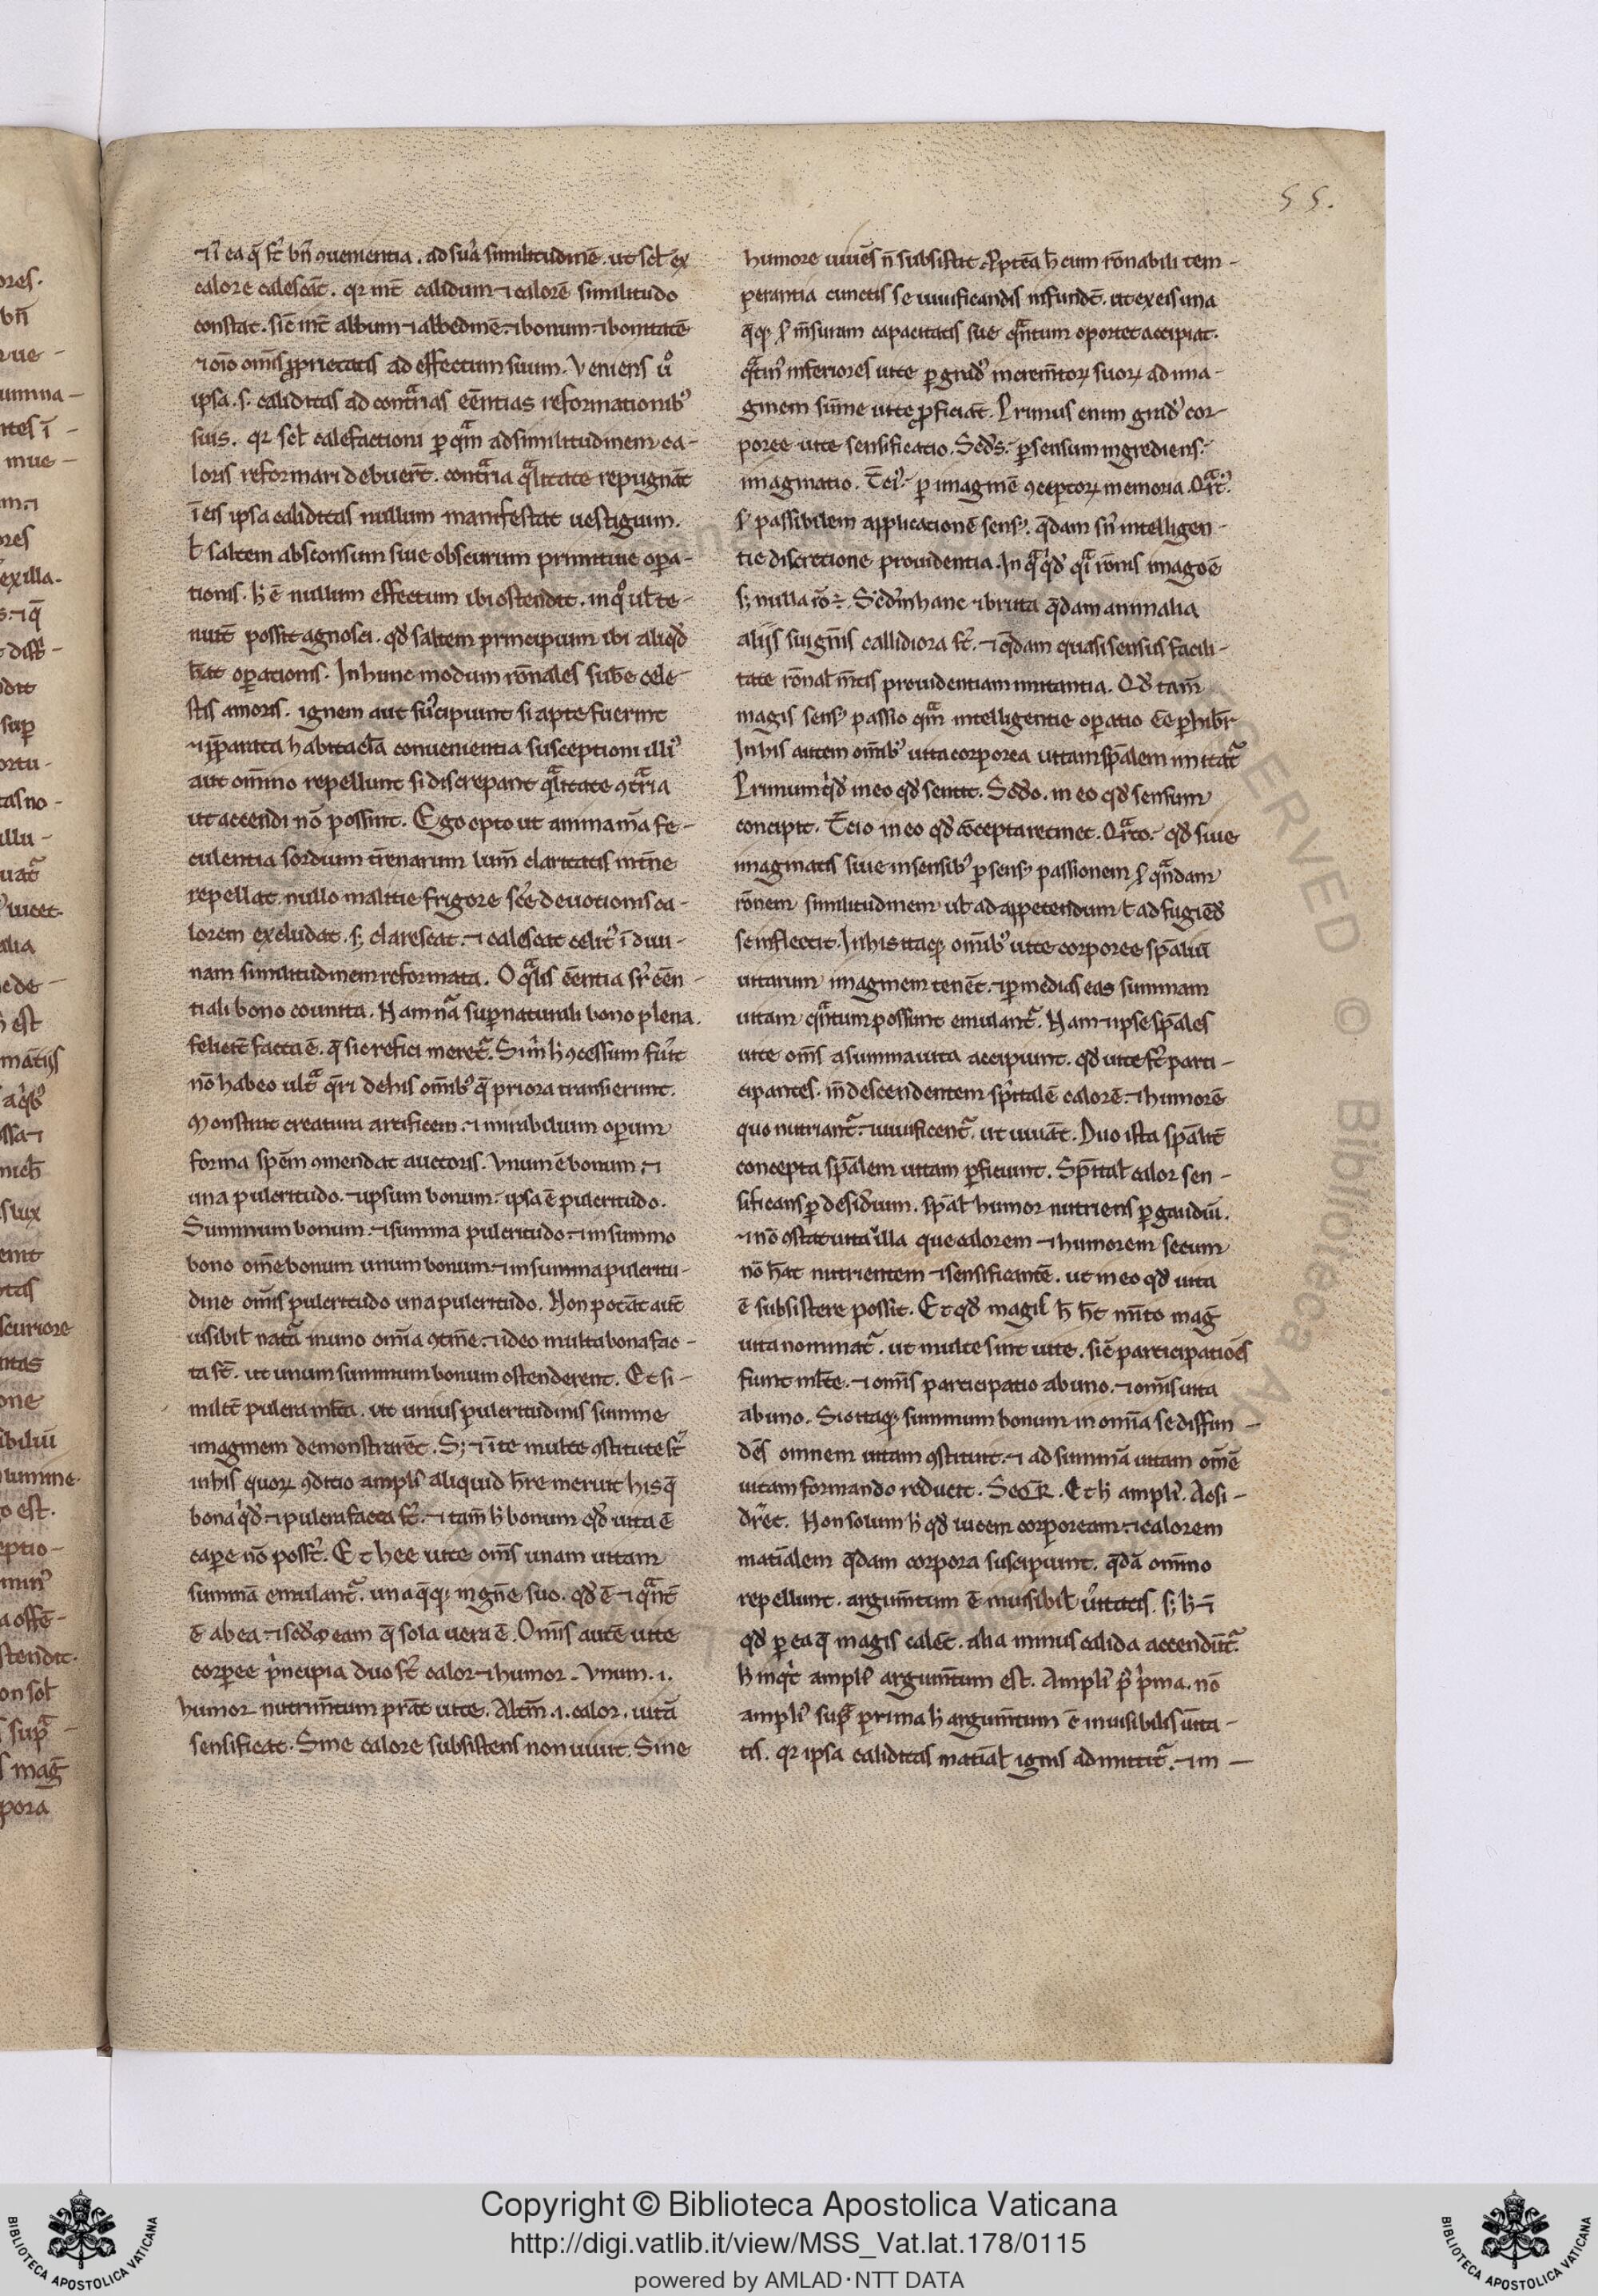 55.
⁊ n̄ ea q̄ st̄ bn̄ ꝯuenientia. ad suā similitudinē. ut scl̄ ex
calore calescāt. qr int̄ calidum ⁊ calorē similitudo
constat. sic̄ int̄ album ⁊ albedinē. ⁊ bonum ⁊ bonitatē
⁊ oīo om̄is ꝓprietatis ad effectum suum. Veniens ů
ipsa .s. caliditas ad contrarias ēentias reformationibꝰ
suis. qr scl̄ calefactioni ꝑ quā ad similitudinem ca-
loris reformari debuert̄. contraria qualitate repugnāt
ī eis ipsa caliditas nullum manifestat uestigium.
ł saltem absconsum siue obscurum primitiue oꝑa-
tionis. h̄ ē nullum effectum ibi ostendit. in quo ul̄ te-
nuit̄ possit agnosci. qd̄ saltem principium ibi aliqd̄
h̄at oꝑationis. In hunc modum rōnales sub̄e cele-
stis amoris. ignem aut suscipiunt si apte fuerint
⁊ p̄parata habitac̄la conuenientia susceptioni illiꝰ
aut om̄ino repellunt si discrepant qualitate ꝯtraria
ut accendi nō possint. Ego opto ut anima mā fe-
culentia sordium tr̄renarum lum̄ claritatis int̄ne
repellat. nullo malitie frigore scē deuotionis ca-
lorem excludat. sꝫ clarescat. ⁊ calescat celitꝰ ī diui-
nam similitudinem reformata. O qualis ēentia sr̄ ēen-
tiali bono counita. Nam nā suꝑnaturali bono plena.
felicit̄ facta ē. q̄ sic refici meret᷑. Si m̄ h̄ ꝯcessum fu̅it
nō habeo ultra q̄ri de his om̄ibꝰ q̄ priora transierunt.
Monstrat creatura artificem. ⁊ mirabilium oꝑum
forma spēm ꝯmendat auctoris. Vnum ē bonum. ⁊
una pulcritudo. ⁊ ipsum bonum. ipsa ē pulcritudo.
Summum bonum. ⁊ summa pulcritudo. ⁊ in summo
bono om̄e bonum unum bonum. ⁊ in summa pulcritu-
dine om̄is pulcritudo una pulcritudo. Non potat̄ aut̄
uisibil̄ natā in uno om̄ia ꝯtin̄e. ⁊ ideo multa bona fac-
ta st̄. ut unum summum bonum ostenderent. Et si-
milit̄ pulcra mlt̄a. ut unius pulcritudinis summe
imaginem demonstrarēt. Sꝫ ⁊ uite multe ꝯstitute st̄
in his quoꝝ ꝯditio ampliꝰ aliquid h̄re meruit his q̄
bona qd̄ ⁊ pulcra facta st̄. ⁊ tam̄ h̄ bonum qd̄ uita ē
caꝑe nō possūt. Et hee uite om̄s unam uitam
summā emulant᷑. una q̄qꝫ in gn̄e suo. qd̄ ē ⁊ quant̄
ē ab ea ⁊ scd̄m eam q̄ sola uera ē. Om̄is autē uite
corꝑee p̄ncipia duo st̄ calor ⁊ humor. Vnum .i.
humor nutrim̄tum p̄rat uite. Alt̄m .i. calor. uitā
sensificat. Sine calore subsistens non uiuit. Sine
humore uiuēs n̄ subsistit. Propt̄ea h̄ cum rōnabili tem-
perantia cunctis se uiuificandis infundit̄. ut ex eis una
q̄qꝫ s̄ m̄suram capacitatis sue quantum oportet accipiat.
quatinꝰ inferiores uite ꝑ gradꝰ incrementoꝝ suoꝝ ad ima-
ginem sum̄e uite ꝓficiāt. Primus enim gradꝰ cor-
poree uite sensificatio. Scd̄s. ꝑ sensum ingrediens.
imaginatio. Tciꝰ. ꝑ imaginē ꝯceptoꝝ memoria. Qrtꝰ.
s̄ passibilem applicationē sensꝰ. q̄dam sn̄ intelligen-
tie discretione prouidentia. In qua qd̄ quasi rōnis imago ē
sꝫ nulla rō ÷. Scd̄m hanc ⁊ bruta q̄dam animalia
alijs sui gn̄is callidiora st̄. ⁊ q̄dam quasi sensus facili-
tate rōnal̄ m̄tis prouidentiam imitantia. Qd̄ tam̄
magis sensꝰ passio quam intelligentie oꝑatio ēe ꝑhibet᷑
In his autem om̄ibꝰ uita corporea uitam spālem imitat᷑
Primum qd̄ in eo qd̄ sentit. Scd̄o. in eo qd̄ sensum
concipit. Tcio in eo qd̄ cōcepta retinet. Qrto. qd̄ siue
imaginatis siue insensibꝰ ꝑ sensꝰ passionem s̄ quandam
rōnem similitudinem ul̄ ad appetendum ł ad fugiēd̄
se inflectit. In his itaqꝫ om̄ibꝰ uite corporee spāliū
uitarum imaginem tenēt. ⁊ ꝑ medias eas summam
uitam quantum possunt emulant᷑. Nam ⁊ ipse spāles
uite om̄s a summa uita accipiunt. qd̄ uite st̄ parti-
cipantes. in̄ descendentem sp̄italē calorē. ⁊ humorē
quo nutriant᷑. ⁊ uiuificent᷑. ut uiuāt. Duo ista spālit̄
concepta spālem uitam ꝑficiunt. Sp̄ital̄ calor sen-
sificans ꝑ desid̄ium. spāl̄ humor nutriens ꝑ gaudiū.
⁊ nō ꝯstat uita illa que calorem ⁊ humorem secum
nō h̄at nutrientem ⁊ sensificantē. ut in eo qd̄ uita
ē subsistere possit. Et qd̄ magis h̄ h̄t m̄ito maḡ
uita nominat᷑. ut multe sint uite. sic̄ participatiōes
fiunt mlt̄e. ⁊ om̄is participatio ab uno. ⁊ om̄is uita
ab uno. Sic itaqꝫ summum bonum in om̄ia se diffun-
dēs omnem uitam ꝯstituit. ⁊ ad summā uitam om̄ē
uitam formando reducit. Et h̄ ampliꝰ. Ac si
dr̄et. Non solum h̄ qd̄ lucem corpoream. ⁊ calorem
mat̄ialem q̄dam corpora suscipiunt. q̄dā om̄ino
repellunt. argum̄tum ē inuisibil̄ u̅itatis. sꝫ h̄ ⁊
qd̄ ꝑ ea q̄ magis calēt. alia minus calida accendūt᷑.
h̄ inqt̄ ampliꝰ argum̄tum est. Ampliꝰ p̄ p̄ma. nō
ampliꝰ supra prima h̄ argum̄tum ē inuisibilis u̅ita-
tis. qr ipsa caliditas mat̄ial̄ ignis admittit᷑. ⁊ in
Copyright © Biblioteca Apostolica Vaticana
http://digi.vatlib.it/view/MSS_Vat.lat.178/0115
powered by AMLAD·NTT DATA
BIBLIOTECA APOSTOLICA VATICANA
BIBLIOTECA APOSTOLICA VATICANA